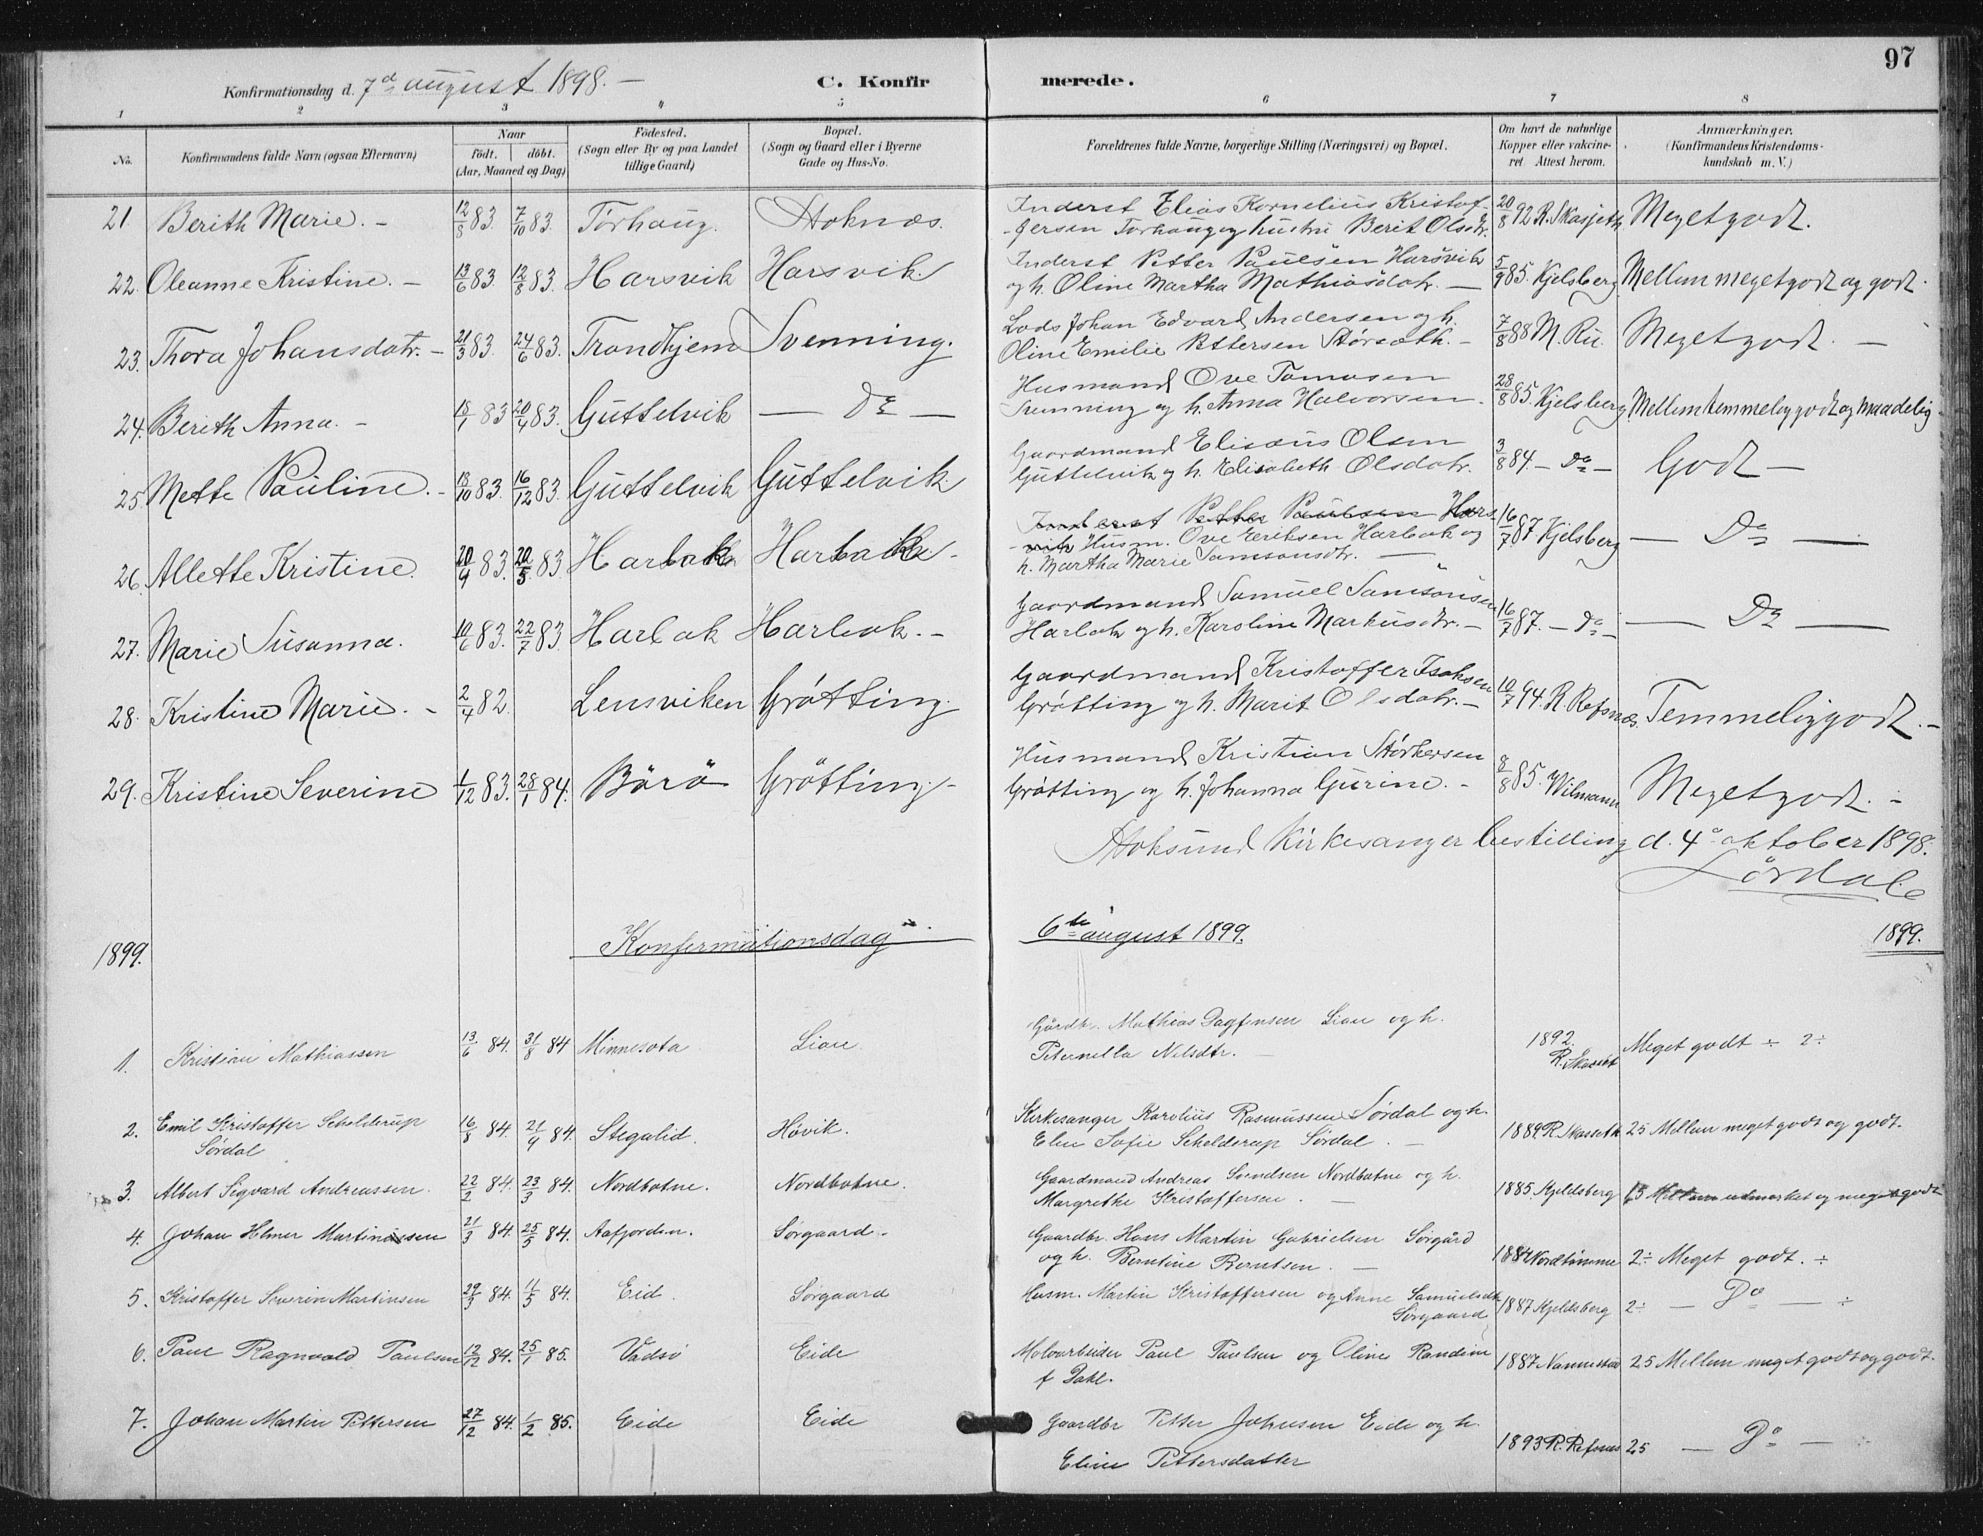 97
Konfirmationsdag d. 7de august 1898. —
C. Konfirmerede.
1 2 3 4 5 6 7 8
No.
Konfirmandens fulde Navn (ogsaa Efternavn)
Naar
födt. | döbt.
(Aar, Maaned og Dag)
Födested.
(Sogn eller By og paa Landet tillige Gaard)
Bopæl.
(Sogn og Gaard eller i Byerne Gade og Hus-No.
Forældrenes fulde Navne, borgerlige Stilling (Næringsvei) og Bopæl.
Om havt de naturlige Kopper eller vakcineret. Attest herom.
Anmærkninger.
(Konfirmandens Kristendomskundskab m. V.)
21. Berith Marie. — 12/8 83. 7/10 83. Törhaug. Stoknæs. Inderst Elias Kornelius Kristof-
fersen Törhaug og hustru Berit Olsdtr. 20/8 92 R. Skasjeth Megetgodt.
22. Oleanne Kristine. — 13/6 83. 12/8 83. Harsvik Harsvik. Inderst Petter Paulsen Harsvik
og h. Oline Martha Mathiasdatr. — 5/9 85. Kjelsberg. Mellem megetgodt og godt.
23. Thora Johansdatr. — 21/3 83. 24/6 83. Trondhjem Svenning. Lods Johan Edvard Andersen og h.
Oline Emilie Pettersen Störsæth. — 7/8 88 M. Ru. Megetgodt. —
24. Berith Anna. — 18/1 83 20/4 83. Guttelvik — Do — Husmand Ove Tomasen
Svenning og h. Anna Halvorsen. 28/8 85. Kjelsberg Mellem temmelig godt og maadelig
25. Mette Pauline. — 18/10 83. 16/12 83. Guttelvik Guttelvik. Gaardmand Elisæus Olsen
Guttelvik og h. Elisabeth Olsdatr. 3/8 84. — Do — Godt —
26. Allette Kristine. 20/4 83. 20/5 83. Harbak Harbak — Inderst Petter Paulsen Hars-
vik Husm. Ove Eriksen Harbak og
h. Martha Marie Samsonsdtr. — 16/7 87 Kjelsberg — Do —
27. Marie Susanna. 10/6 83. 22/7 83. Harbak Harbak. — Gaardmand Samuel Samsonsen
Harbak og h. Karoline Markusdtr. — 16/7 87. — Do — — Do —
28. Kristine Marie. — 2/4 82. Lensviken Gråtting. Gaardmand Kristoffer Isaksen
Gråtting og h. Marit Olsdatr. — 10/7 94. R. Refsnæs. Temmeliggodt. —
29. Kristine Severine 1/12 83. 28/1 84. Börö Gråtting. — Husmand Kristian Störkersen
Gråtting og h. Johanna Gurine. — 8/8 85. Wilmann Megetgodt. —
Stoksund Kirkesangerbestilling d. 4de oktober 1898.
Sördal
1899. Konfirmationsdag 6te august 1899. 1899.
1. Kristian Mathiassen 13/6 84. 31/8 84 Minnesota Lian. Gårdbr. Mathias Dagfinsen Lian og h.
Peternella Nilsdtr. — 1892. R. Skasset Meget godt ÷ 2 ÷
2. Emil Kristoffer Schelderup
Sørdal 16/8 84. 21/9 84. Stegalid. Hövik. Kirkesanger Karolius Rasmussen Sørdal og h.
Elen Sofie Schelderup Sørdal. — 1889 R. Skasseth 25 Mellem meget godt og godt.
3. Albert Sigvard Andreassen. 22/2 84. 23/3 84. Nordbotne. Nordbotne. Gaardmand Andreas Svendsen Nordbotne og h.
Margrethe Kristoffersen. — 1885. Kjeldsberg 1,5 Mellem udmerket og meget godt
4. Johan Helmer Martinussen 21/3 84. 25/5 84. Aafjorden. Sørgaard. Gaardbr. Hans Martin Gabrielsen Sørgård
og h. Berntine Berntsen. — 1884 Nordtömme 2 ÷ Meget godt. ÷
5. Kristoffer Severin Martinsen 29/3 84. 11/5 84. Eid. Sørgaard Husm. Martin Kristoffersen og Anne Samuelsdtr
Sørgaard 1887 Kjeldsberg 2 ÷ — Do — ÷
6. Paul Ragnvald Paulsen 12/12 84. 25/1 85. Vadsö Eide Moloarbeider Paul Paulsen og Oline Randine
f. Dahl. 1887 Nannestad 25 Mellem meget godt og godt.
7. Johan Martin Pettersen 27/12 84. 1/2 85. Eide Eide Gaardbr Petter Johnsen Eide og h.
Eline Pettersdatter 1893 R. Refsnes 25 — Do —